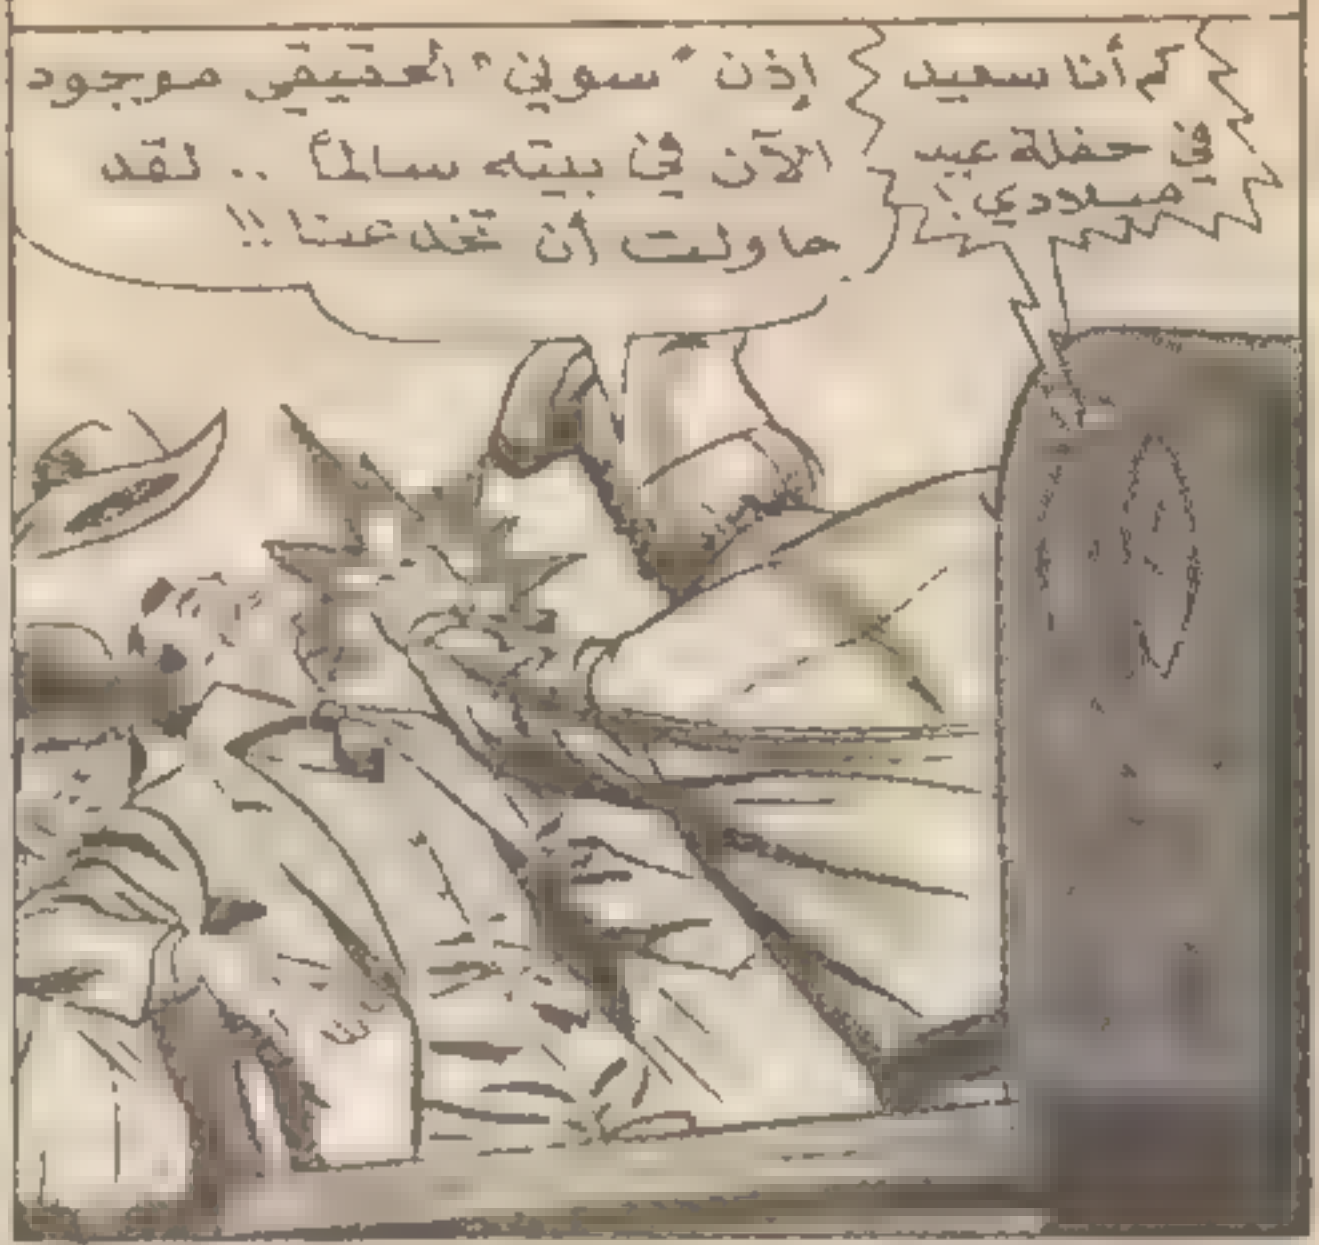 كم أنا سعيد
في حفلة عيد
ميلادي!
إذن "سوين" الحقيقي موجود
الآن في بيته سالماً .. لقد
حاولت أن تخدعنا!!